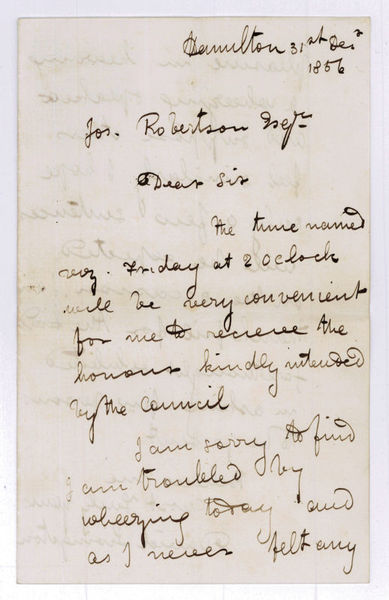 Hamilton 31st Decr
1856
Jos. Robertson Esqre
Dear Sir
the time named
viz. Friday at 2 oClock
will be very convenient
for me to recieve the
honour kindly intended
by the Council
I am sorry to find
I am troubled by
wheezing today and
as I never felt any